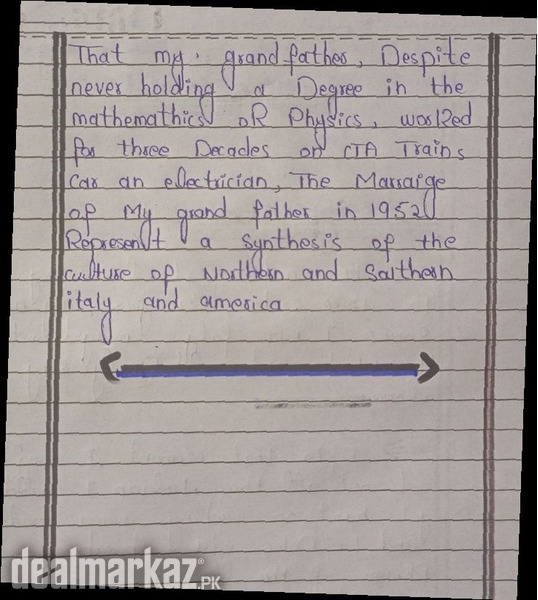 That my. grandfather, Despite
never holding a Degree in the
mathemathics oR Physics, worked
for three Decades on CTA Trains
Car an electrician, The Marraige
of My grand father in 1952
Represent a synthesis of the
culture of Northern and Salthern
italy and america
dealmarkaz.PK